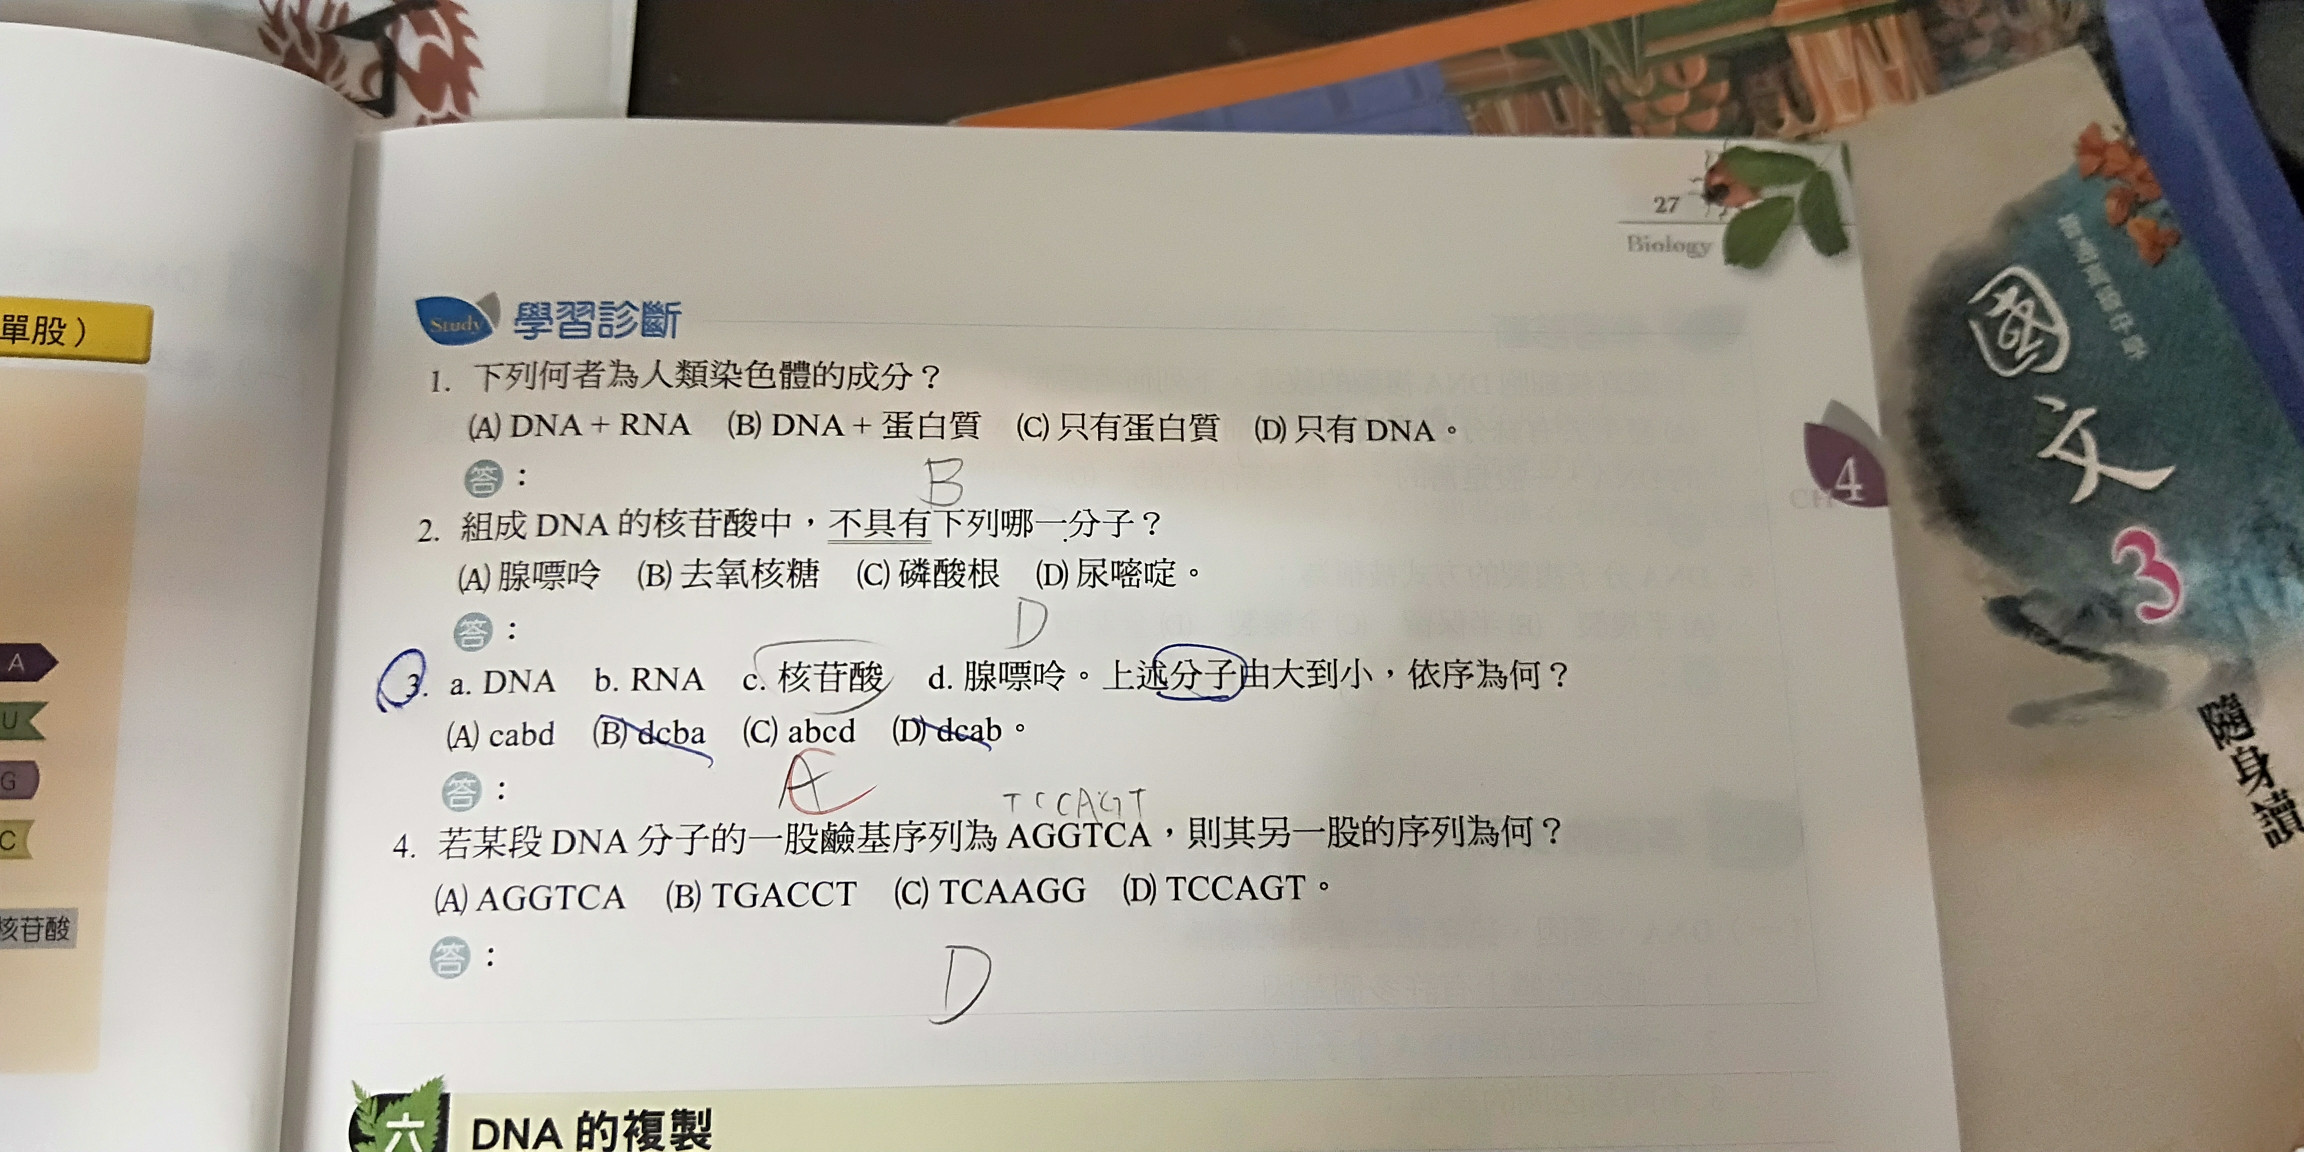 27
Biology
Study 學習診斷
1. 下列何者為人類染色體的成分？
(A) DNA + RNA (B) DNA + 蛋白質 (C) 只有蛋白質 (D) 只有 DNA。
答：
B
2. 組成 DNA 的核苷酸中，不具有下列哪一分子？
(A) 腺嘌呤 (B) 去氧核糖 (C) 磷酸根 (D) 尿嘧啶。
答：
D
3. a. DNA b. RNA c. 核苷酸 d. 腺嘌呤。上述分子由大到小，依序為何？
(A) cabd (B) dcba (C) abcd (D) dcab。
答：
TCCAGT
4. 若某段 DNA 分子的一股鹼基序列為 AGGTCA，則其另一股的序列為何？
(A) AGGTCA (B) TGACCT (C) TCAAGG (D) TCCAGT。
答：
D
六 DNA 的複製
CH 4
單股）
A
U
G
C
核苷酸
國文
3
隨身讀